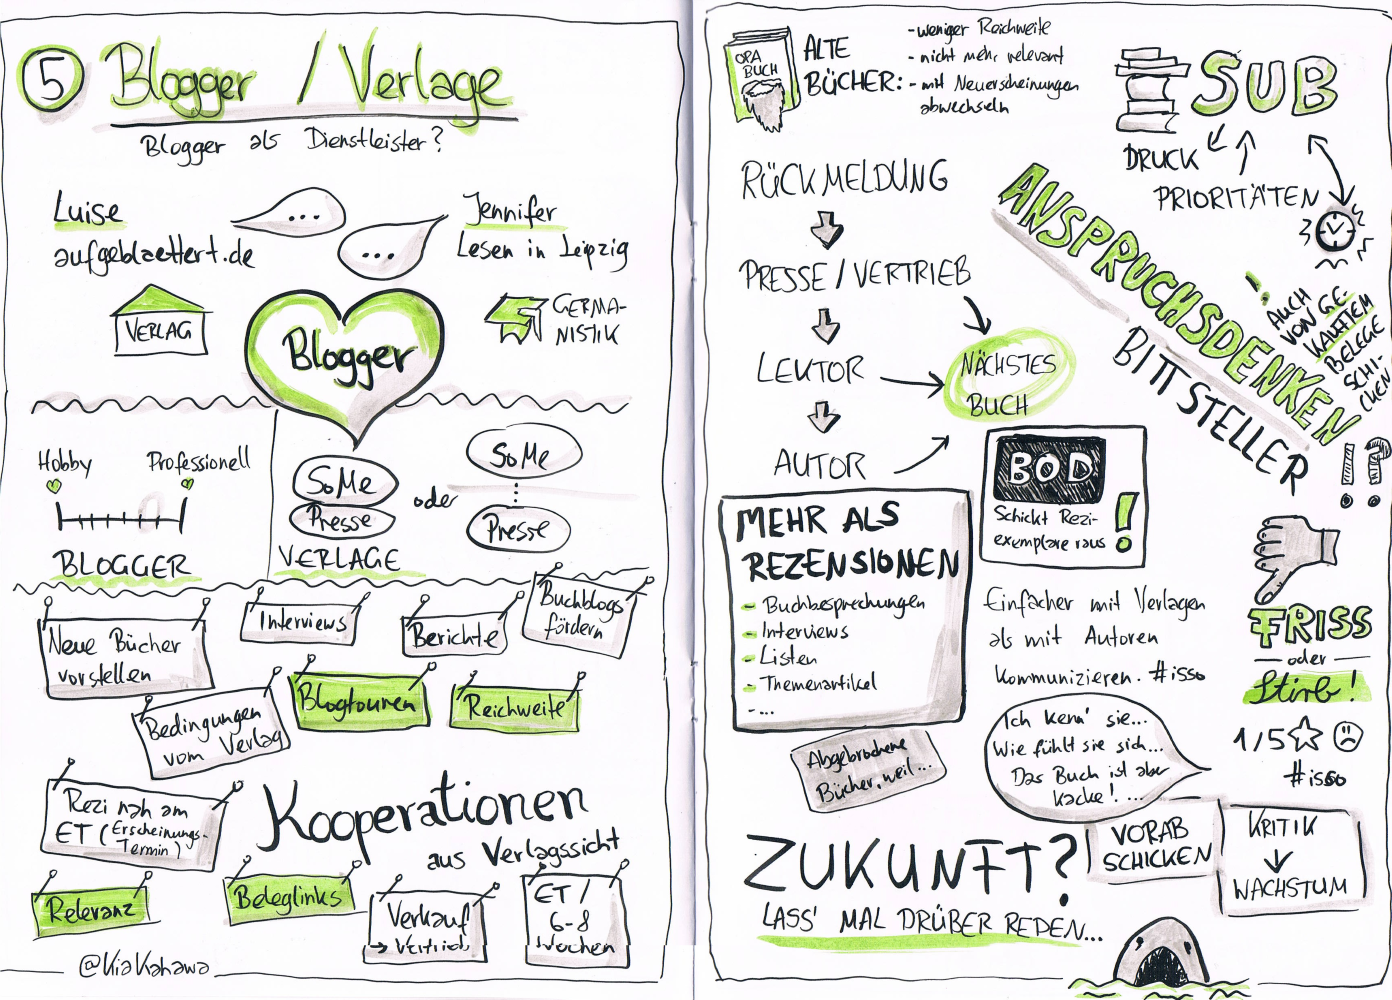 5 Blogger / Verlage
Blogger als Dienstleister?
Luise
aufgeblaettert.de
...
...
Jennifer
Lesen in Leipzig
VERLAG
Blogger
GERMA-
NISTIK
Hobby
Professionell
BLOGGER
SoMe
Presse
oder
SoMe
Presse
VERLAGE
Neue Bücher
vorstellen
Interviews
Berichte
Buchblogs
fördern
Bedingungen
vom Verlag
Blogtouren
Reichweite
Rezi nah am
ET (Erscheinungs-
Termin)
Kooperationen
aus Verlagssicht
Relevanz
Beleglinks
Verkauf
→ Vertrieb
ET /
6-8
Wochen
@KiaKahawa
OPA
BUCH
ALTE
BÜCHER:
- weniger Reichweite
- nicht mehr relevant
- mit Neuerscheinungen
abwechseln
SUB
DRUCK
PRIORITÄTEN
RÜCKMELDUNG
PRESSE / VERTRIEB
LEKTOR
AUTOR
NÄCHSTES
BUCH
ANSPRUCHSDENKEN
BITTSTELLER
!?
! AUCH
VON GE-
KAUFTEM
BELEGE
SCHI-
CKEN
BOD
Schickt Rezi-
exemplare raus !
MEHR ALS
REZENSIONEN
- Buchbesprechungen
- Interviews
- Listen
- Themenartikel
- ...
Abgebrochene
Bücher, weil...
Einfacher mit Verlagen
als mit Autoren
kommunizieren. #isso
Ich kenn' sie...
Wie fühlt sie sich...
Das Buch ist aber
kacke! ...
FRISS
oder
Stirb!
1/5
#isso
VORAB
SCHICKEN
KRITIK
↓
WACHSTUM
ZUKUNFT?
LASS' MAL DRÜBER REDEN...